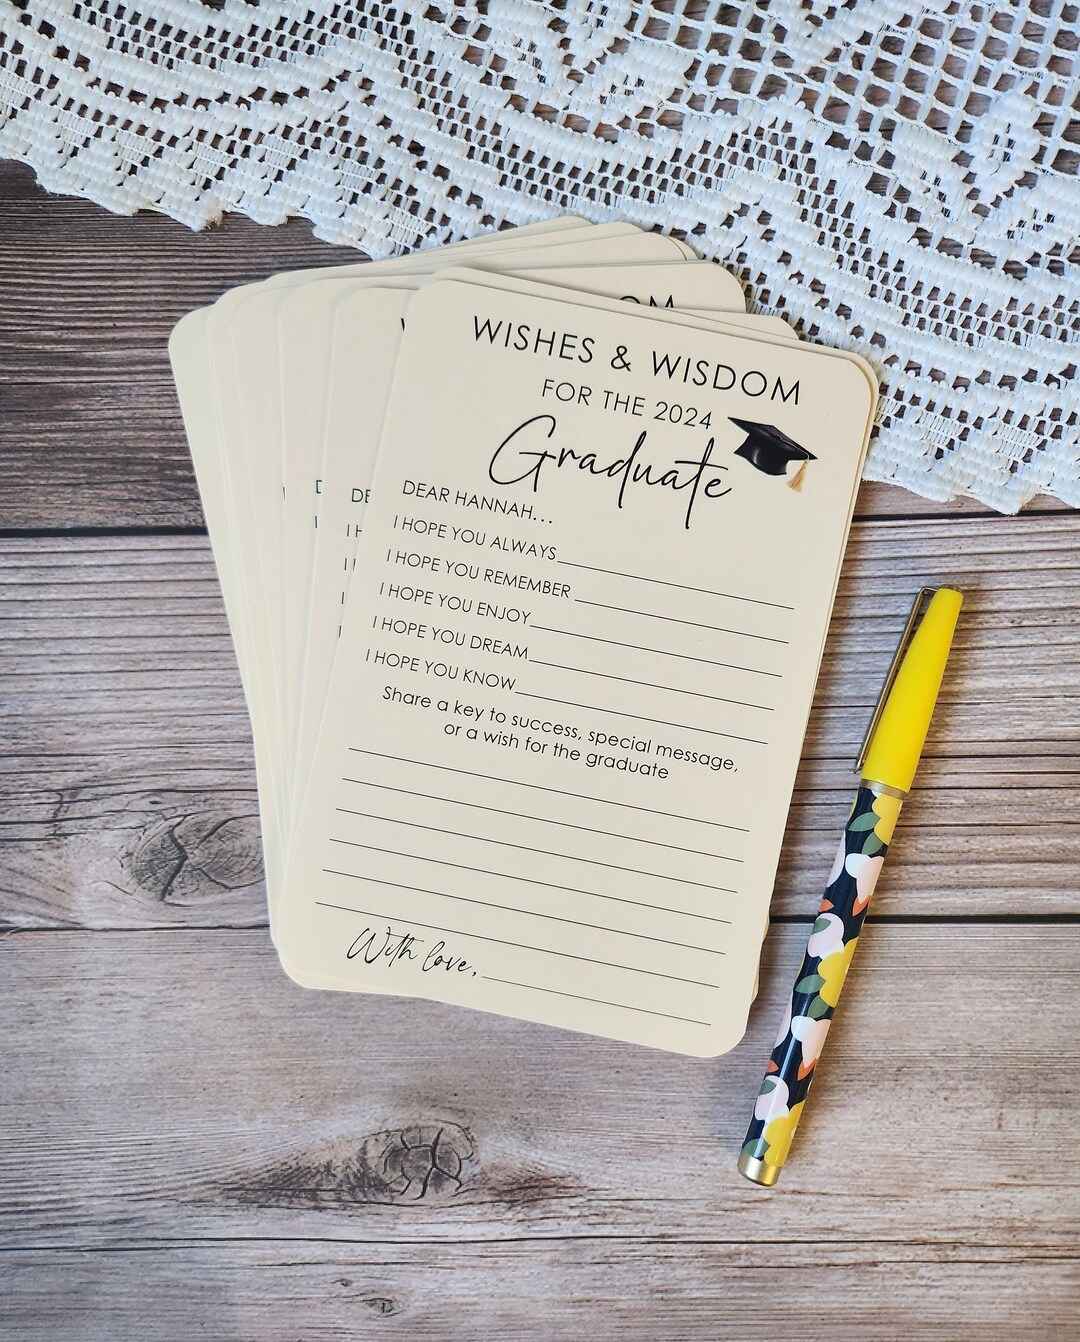 WISHES & WISDOM
FOR THE 2024
Graduate
DEAR HANNAH...
I HOPE YOU ALWAYS
I HOPE YOU REMEMBER
I HOPE YOU ENJOY
I HOPE YOU DREAM
I HOPE YOU KNOW
Share a key to success, special message,
or a wish for the graduate
With love,